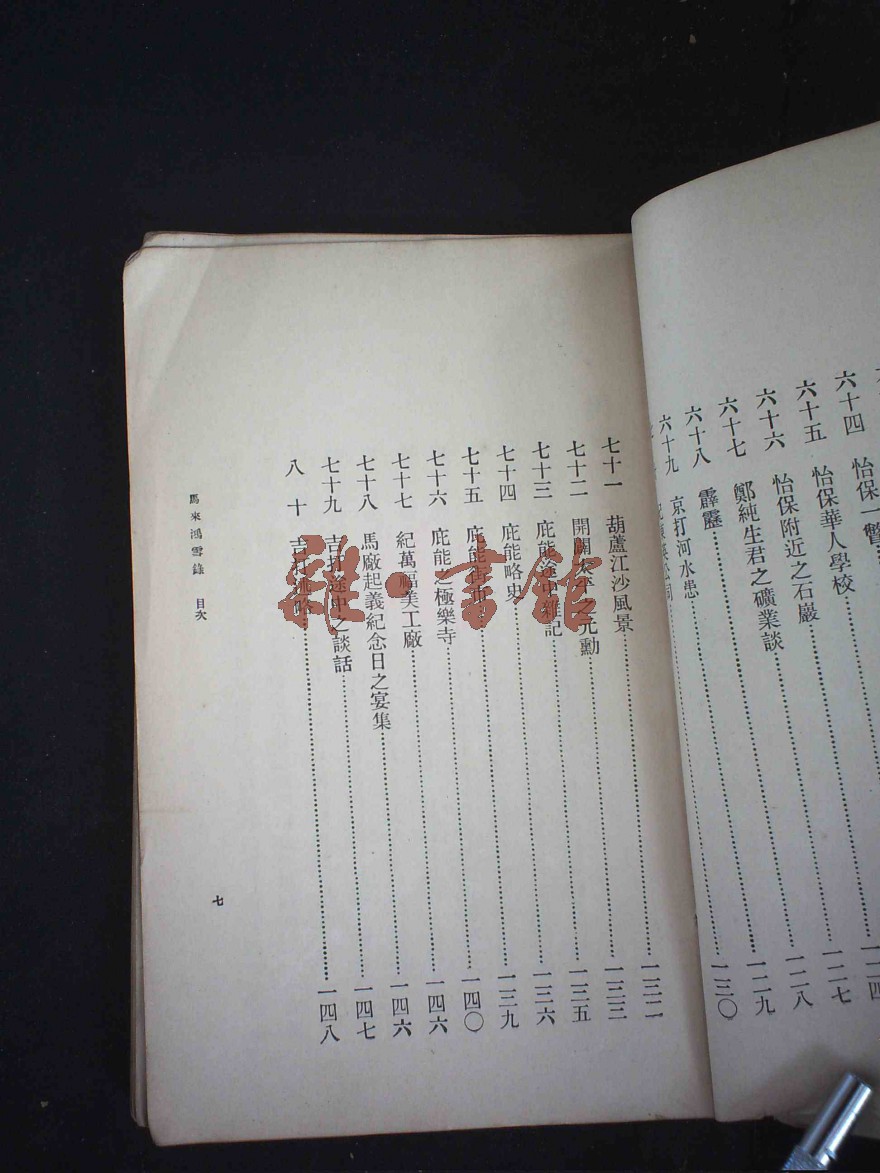 六十四 怡保一瞥……一二四
六十五 怡保華人學校……一二七
六十六 怡保附近之石巖……一二八
六十七 鄭純生君之礦業談……一二九
六十八 霹靂……一三〇
六十九 京打河水患……
七十一 葫蘆江沙風景……一三二
七十二 開闢太平之元勳……一三三
七十三 庇能途中雜記……一三五
七十四 庇能略史……一三六
七十五 庇能街市……一三九
七十六 庇能之極樂寺……一四〇
七十七 紀萬福美工廠……一四六
七十八 馬廠起義紀念日之宴集……一四六
七十九 吉打途中之談話……一四七
八十 吉打略……一四八
馬來鴻雪錄 目次
七
雜·書館